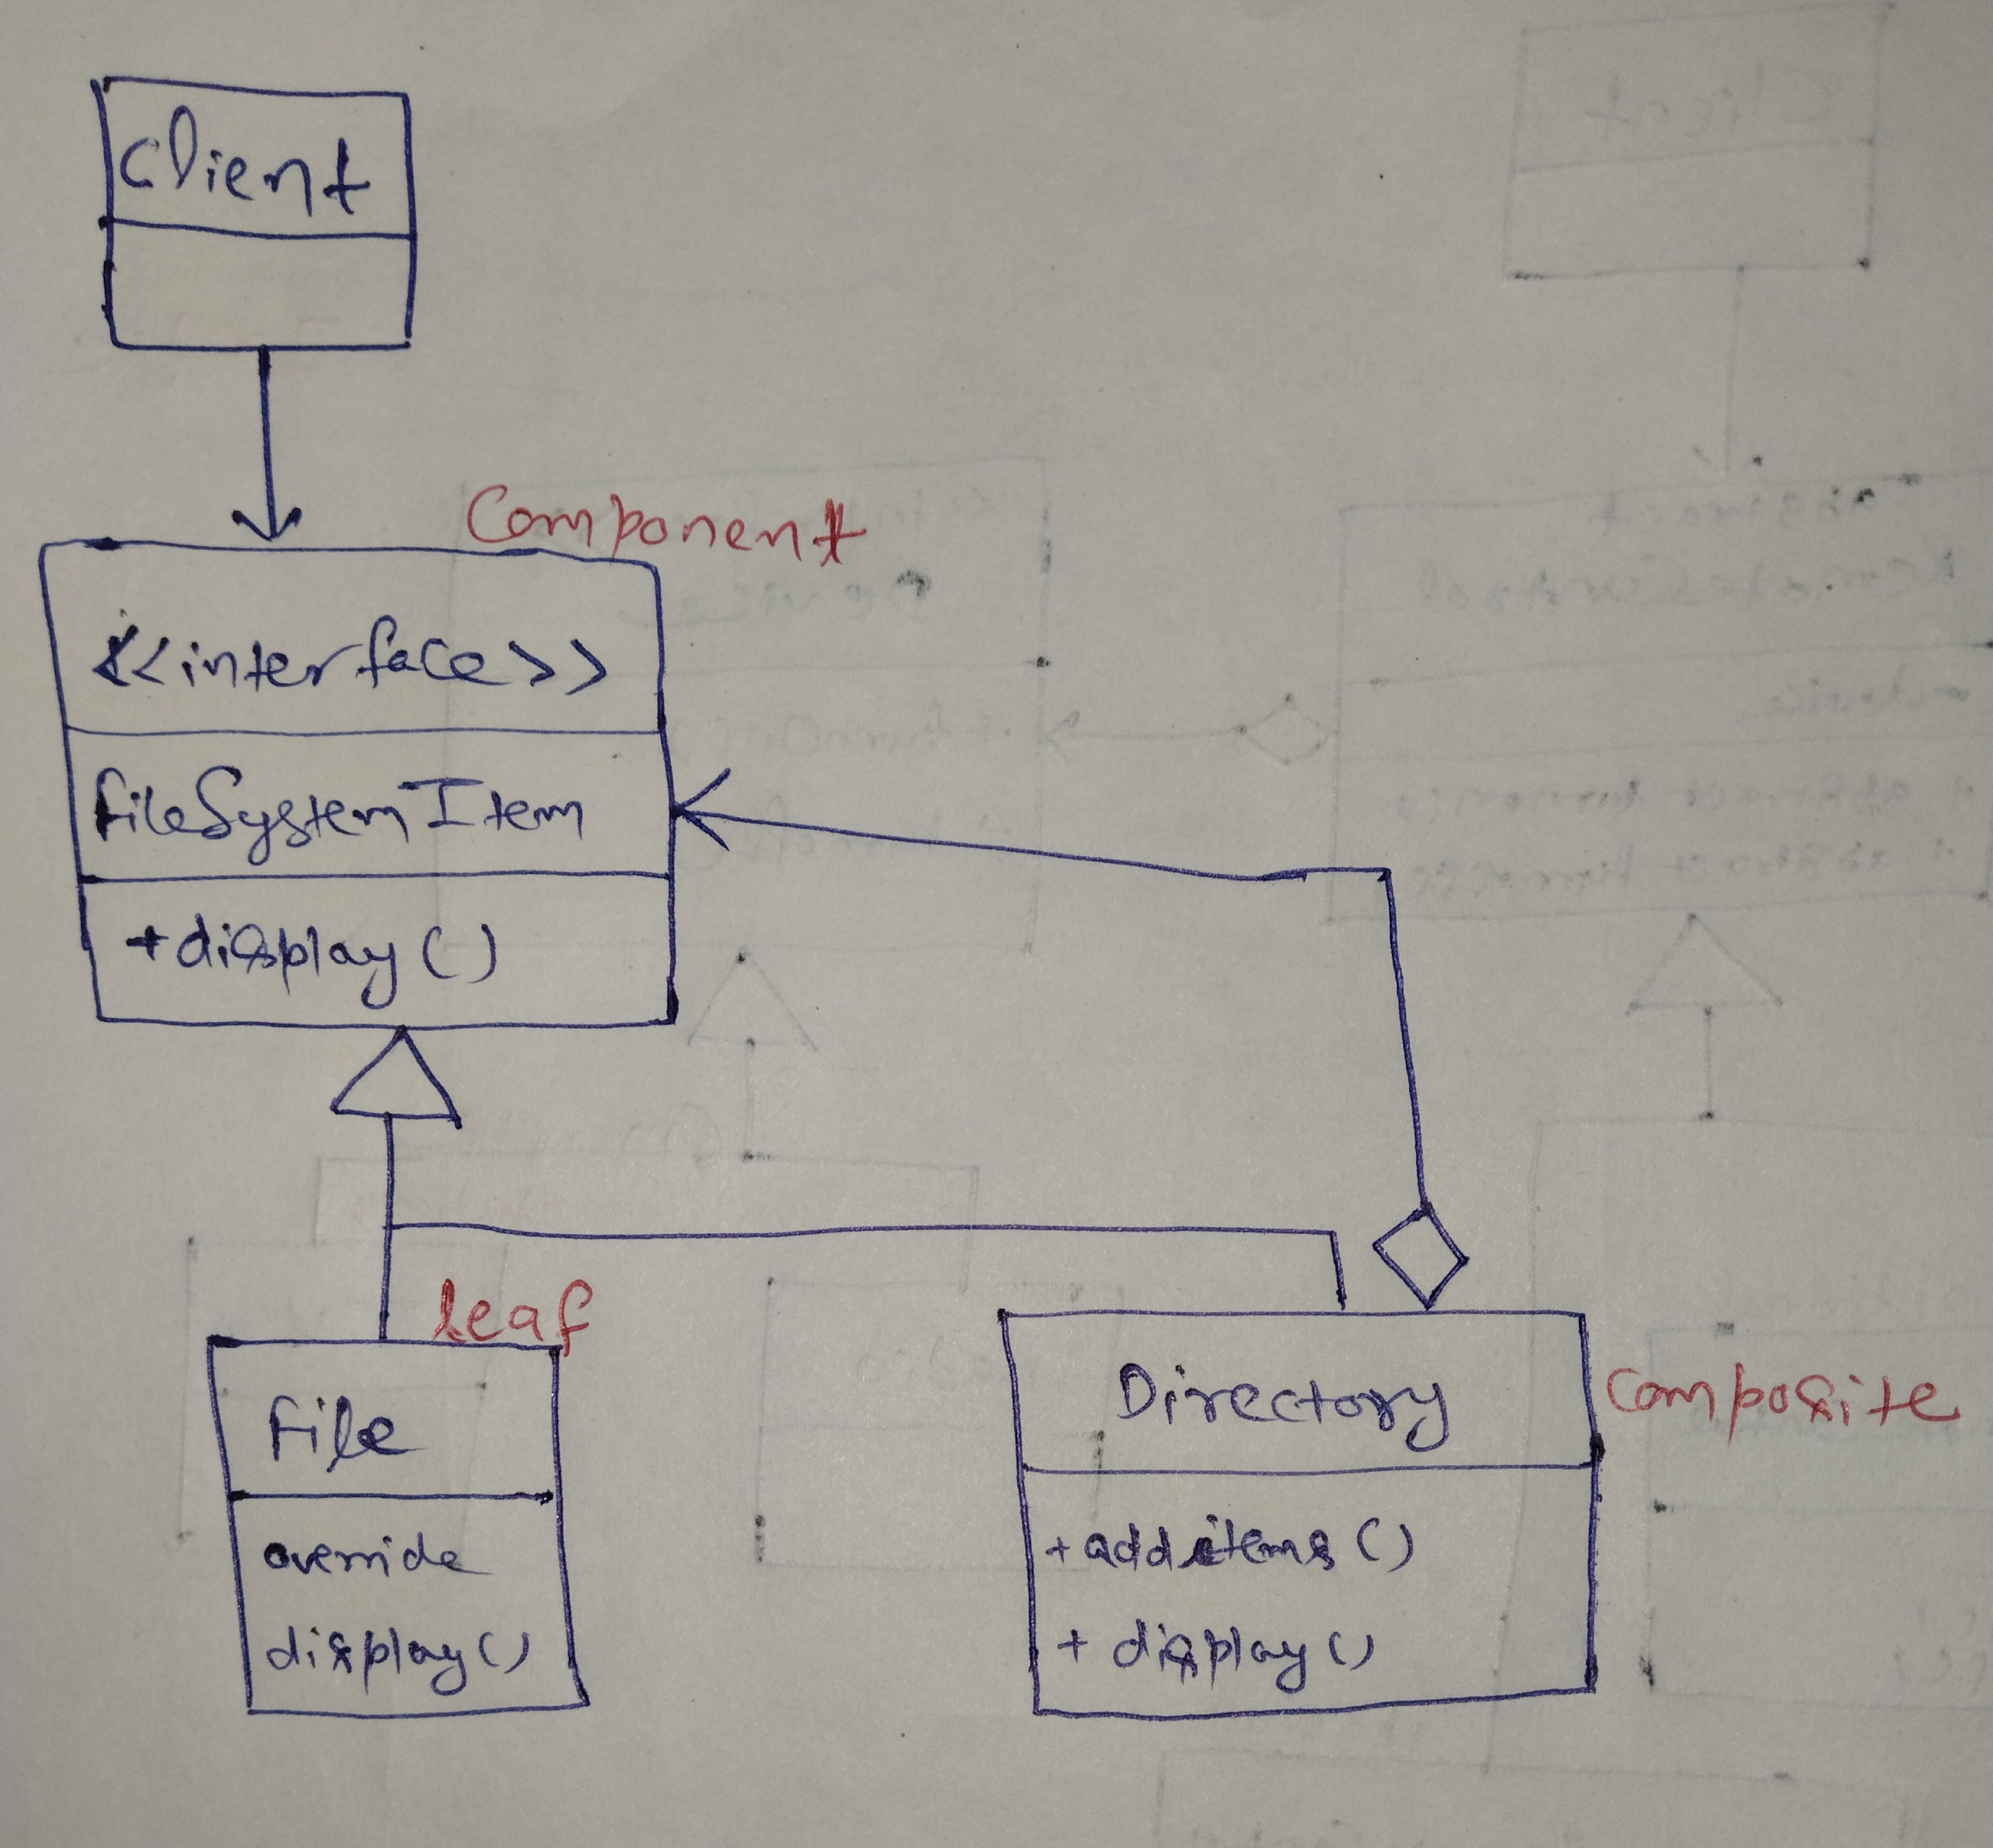 Client
Component
<<interface>>
FileSystemItem
+display()
leaf
File
override
display()
Directory
Composite
+additems()
+ display()